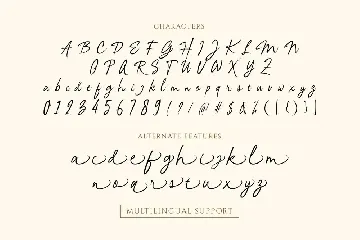 CHARACTERS
A B C D E F G H I J K L M N
O P Q R S T U V W X Y Z
a b c d e f g h i j k l m n o p q r s t u v w x y z
0 1 2 3 4 5 6 7 8 9 ! ? / @ # $ & % ( | { } ]
ALTERNATE FEATURES
a c d e f g h i j k l m
n o q r s t u x y z
MULTILINGUAL SUPPORT